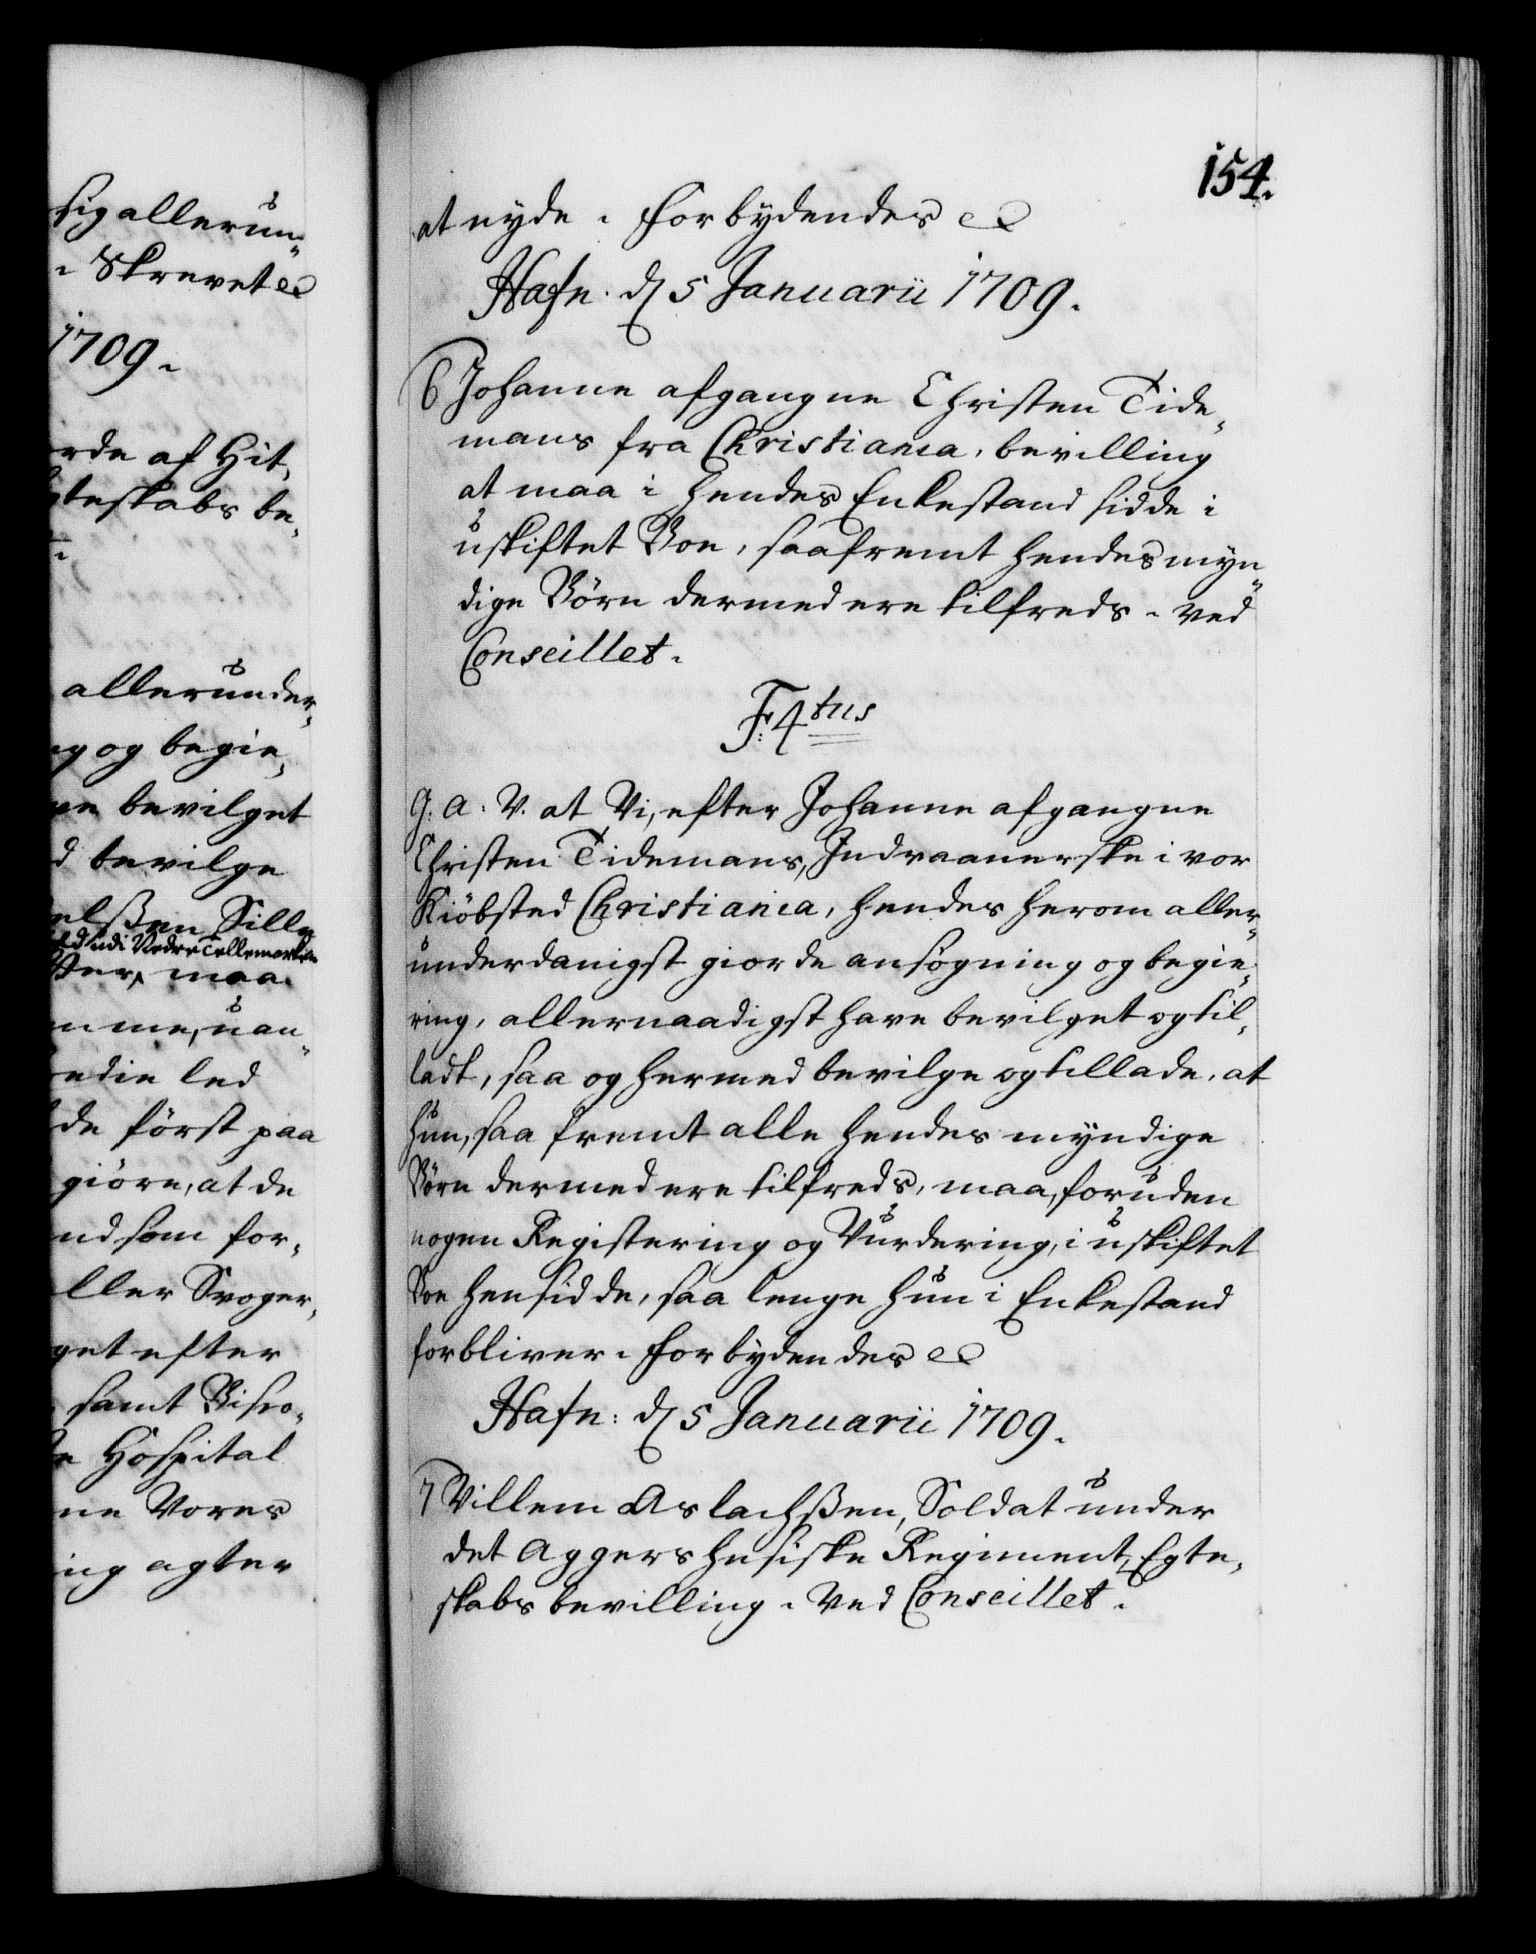 sig allerun„
. Skrevet &c
1709.
rde af Hit„
gteskabs be„
allerunder„
ng og begie„
ve bevilget
d bevilge
elsßen Sille
ld udi Nedre Tellemarken
ter, maa
mme, uan„
redie led
de først paa
giöre, at de
nd som for„
ller Svoger„
get efter
samt Bisco„
e Hospital
ne Vores
ing agter
154.
at nyde. Forbydendes &c
Hafn. d 5 Januarii 1709.
6 Johanne afgangne Christen Tide„
mans fra Christiania, bevilling
at maa i hendes Enkestand sidde i
uskiftet Boe, saafremt hendes myn„
dige Börn dermed ere tilfreds. ved
Conseillet.
F: 4tus
G. A. V. at Vi, efter Johanne afgangne
Christen Tidemans, Indvaanerske i vor
Kiöbsted Christiania, hendes herom aller„
underdanigst giorde ansøgning og begie„
ring, allernaadigst have bevilget og til„
ladt, saa og hermed bevilge og tillade, at
hun, saa fremt alle hendes myndige
Börn dermed ere tilfreds, maa, foruden
nogen Registering og Vurdering, i uskiftet
Boe hensidde, saa lenge hun i Enkestand
forbliver. Forbydendes &c
Hafn: d 5 Januarii 1709.
7 Villem Aslachßen, Soldat under
det Aggershusiske Regiment, Egte„
skabs bevilling. Ved Conseillet.